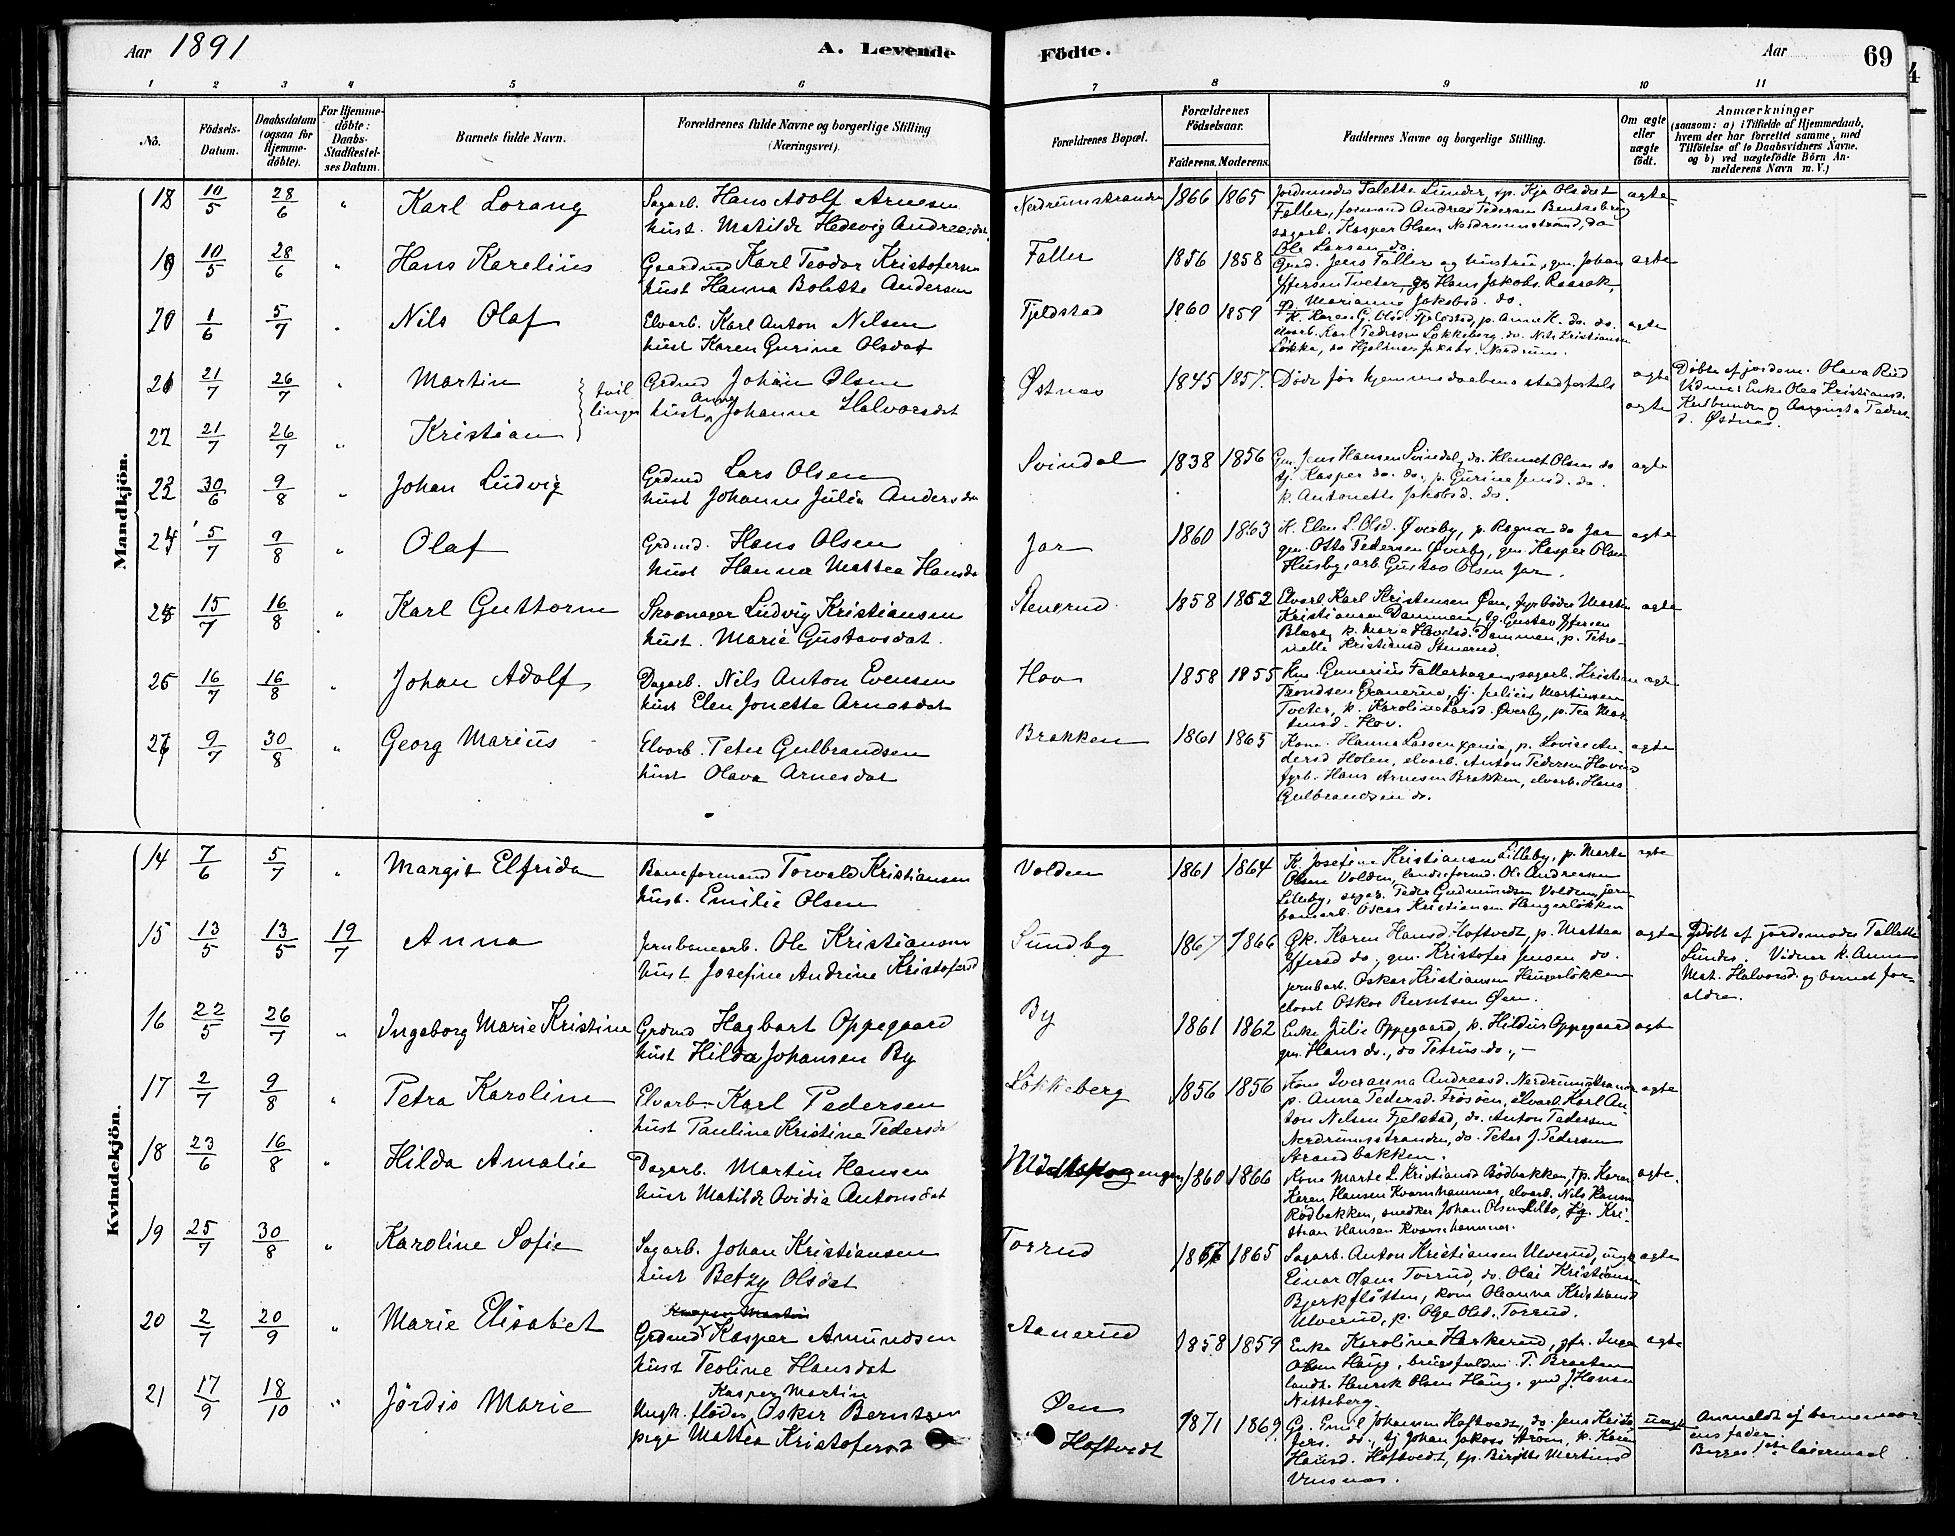 Aar 1891
A. Levende
Födte.
Aar
69
1 2 3 4 5 6 7 8 9 10 11
No.
Födsels-Datum.
Daabsdatum (ogsaa for Hjemme-döbte).
For Hjemme-döbte: Daabs-Stadfæstel-ses Datum.
Barnets fulde Navn.
Forældrenes fulde Navne og borgerlige Stilling (Næringsvei).
Forældrenes Bopæl.
Forældrenes Födselsaar.
Faderens. Moderens.
Faddernes Navne og borgerlige Stilling.
Om ægte eller uægte födt.
Anmærkninger
(saasom: a) i Tilfælde af Hjemmedaab, hvem der har forrettet samme, med Tilföielse af to Daabsvidners Navne, og b) ved uægtefödte Börn An-melderens Navn m. V.)
Mandkjön.
18 10/5 28/6 " Karl Lorang
Sagarb. Hans Adolf Arnesen
hust. Matilde Hedevig Andreasdat.
Nerdrumstranden 1866 1865
Jordemoder Talette Lunder,
sagarb. Kasper Olsen Nerdrumstrand, do
Ole Larsen do.
ægte
19 10/5 28/6 " Hans Karelius
Gaardmd Karl Teodor Kristofersen
hust Hanna Bolette Andersen
Faller 1856 1858
Gmd. Jens Faller og hustru, gm. Johan
Marianne Jakobsd. do.
ægte
20 1/6 5/7 " Nils Olaf
Elvarb. Karl Anton Nilsen
hust Karen Gurine Olsdat
Fjeldstad 1860 1859
elvarb. Karl Pedersen Løkkeberg, do. Nils Kristiansen
Løkka, do Hjalmar Jakobs. Nerdrum.
ægte
21 21/7 26/7 " Martin
tvil linger
Grdmd Johan Olsen
hust Anne Johanne Halvorsdat
Østnes 1845 1857.
Døde før hjemmedaabens stadfæstels
ægte
ægte
Døbte af jordem. Olava Rud
Vidner: Enke Olea Kristiansd.
og Augusta Peders-
d. Østnes.
22 21/7 26/7 " Kristian
23 30/6 9/8 " Johan Ludvig
Grdmd Lars Olsen
hust Johanne Julia Andersdat
Svindal 1838 1856
Gm. Jens Hansen Svindal, do. Klemet Olsen do
tj. Kasper do. do., p. Gurine Jensd. do.
k. Antonette Jakobsd. do.
ægte
24 5/7 9/8 " Olaf
Grdmd. Hans Olsen
hust Hanna Mattea Hansda
Jar 1860 1863
K. Elen L. Olsd. Øverby, p. Ragna do Jar
gm. Otto Pedersen Øverby, gm. Kasper Olsen
Husby, arb. Gustav Olsen Jar.
ægte
25 15/7 16/8 " Karl Guttorm
Skomager Ludvig Kristiansen
hust. Marie Gustavsdat.
Stenerud 1858 1852
Elvarb. Karl Kristensen Øen, fyrbøder Martin
Kristiansen Dammen, tj. Gustav
k. Marie Dammen, p. Petro-
nelle Kristiansd Stenerud.
ægte
26 16/7 16/8 " Johan Adolf
Dagarb. Nils Anton Evensen
hust Elen Jonette Arnesdat
Hov 1858 1855
Gunerius Fallerhagen, sagarb. Kristian
Trondsen tj. Julius Martinsen
Tveter, p. Karoline Larsd. Øverby, p. Tea Mar-
tinsd. Hov.
ægte
27 9/7 30/8 " Georg Marius
Elvarb. Peter Gulbrandsen
hust Olava Arnesdat
Brakken 1861 1865
Kone. Hanna Larsen Xania, p. Lovise An-
dersd Holen, elvarb. Anton Pedersen
fyrb. Hans Arnesen Brakken, elvarb. Hans
Gulbrandsen do.
ægte
Kvindekjön.
14 7/6 5/7 " Margit Elfrida
Baneformand Torvald Kristiansen
hust. Emilie Olsen
Volden 1861 1864
K. Josefine Kristiansen Lilleby, p. Marte
Olsen Volden, Ole Andreasen
Lilleby, Peder Gudmundsen Volden, jern-
banearb. Oscar Kristiansen Haugerløkken
ægte
15 13/5 13/5 19/7 Anna
Jernbanearb. Ole Kristiansen
hust Josefine Andrine Kristofersd
Sundby 1867 1866
Karen Hansd. Hoftvedt, p. Mattea
do., gm. Kristofer Jensen do.
jernbarb. Oskar Kristiansen Haugerløkken
elvarb Oskar Berntsen Øen.
ægte
Døbt af jordemoder Tallette
Lunder. Vidner k. Anne
Mat. Halvorsd. og barnets for-
ældre.
16 22/5 26/7 " Ingeborg Marie Kristine
Grdmd Hagbart Oppegaard
hust Hilda Johansen By
By 1861 1862
Enke Julie Oppegaard, p. Hildur Oppegaard
gm. Hans do., do Petrus do.,
ægte
17 2/7 9/8 " Petra Karoline
Elvarb. Karl Pedersen
hust Pauline Kristine Pedersd
Løkkeberg 1856 1856
Kone Iveranna Andreasd. Nerdrumstranden
p. Anna Pedersd. Frøsøen, elvarb. Karl An-
ton Nilsen Fjelstad, do. Anton Pedersen
Nerdrumstranden, do. Peter J. Pedersen
Strandbakken.
ægte
18 23/6 16/8 " Hilda Amalie
Dagarb. Martin Hansen
hust Matilde Ovidia Antonsdat
1860 1866
Kone Marte L. Kristiansd Rødbakken, tp. Karen
Karen Hansen Kvernhammer, elvarb. Nils Hansen
Rødbakken, snedker Johan Olsen Lilbo, tj. Kri-
stian Hansen Kvernhammer.
ægte.
19 25/7 30/8 " Karoline Sofie
Sagarb. Johan Kristiansen
hust Betzy Olsdat
Torrud 1865
Sagarb. Anton Kristiansen Ulverud, ungk
Einar Olsen Torrud, do. Olai Kristiansen
Bjerkfløtten, kone Oleanna Kristiansd
Ulverud, p. Olga Olsd. Torrud.
ægte
20 2/7 20/9 " Marie Elisabet
Kasper Martin
Grdmd Kasper Amundsen
hust Teoline Hansdat
Aanerud 1858 1859
Enke Karoline Harkerud, gfr. Inga
Olsen Haug, T. Braaten
landh. Henrik Olsen Haug. gmd J. Hansen
Nitteberg.
ægte
21 17/9 18/10 " Jördis Marie
Kasper Martin
Ungk. fløder, Oskar Berntsen
pige Mattea Kristofersd
Øen
Hoftvedt 1871 1869
Gg. Emil Johansen Hoftvedt, do. Jens Kristo
fers. do., tj Johan Jakobs Strøm, p. Karen
Hansd. Hoftvedt, tp. Birgitte Martinsd
uægte
Anmeldt af barnemoder-
ens fader.
Begges 1ste leiermaal